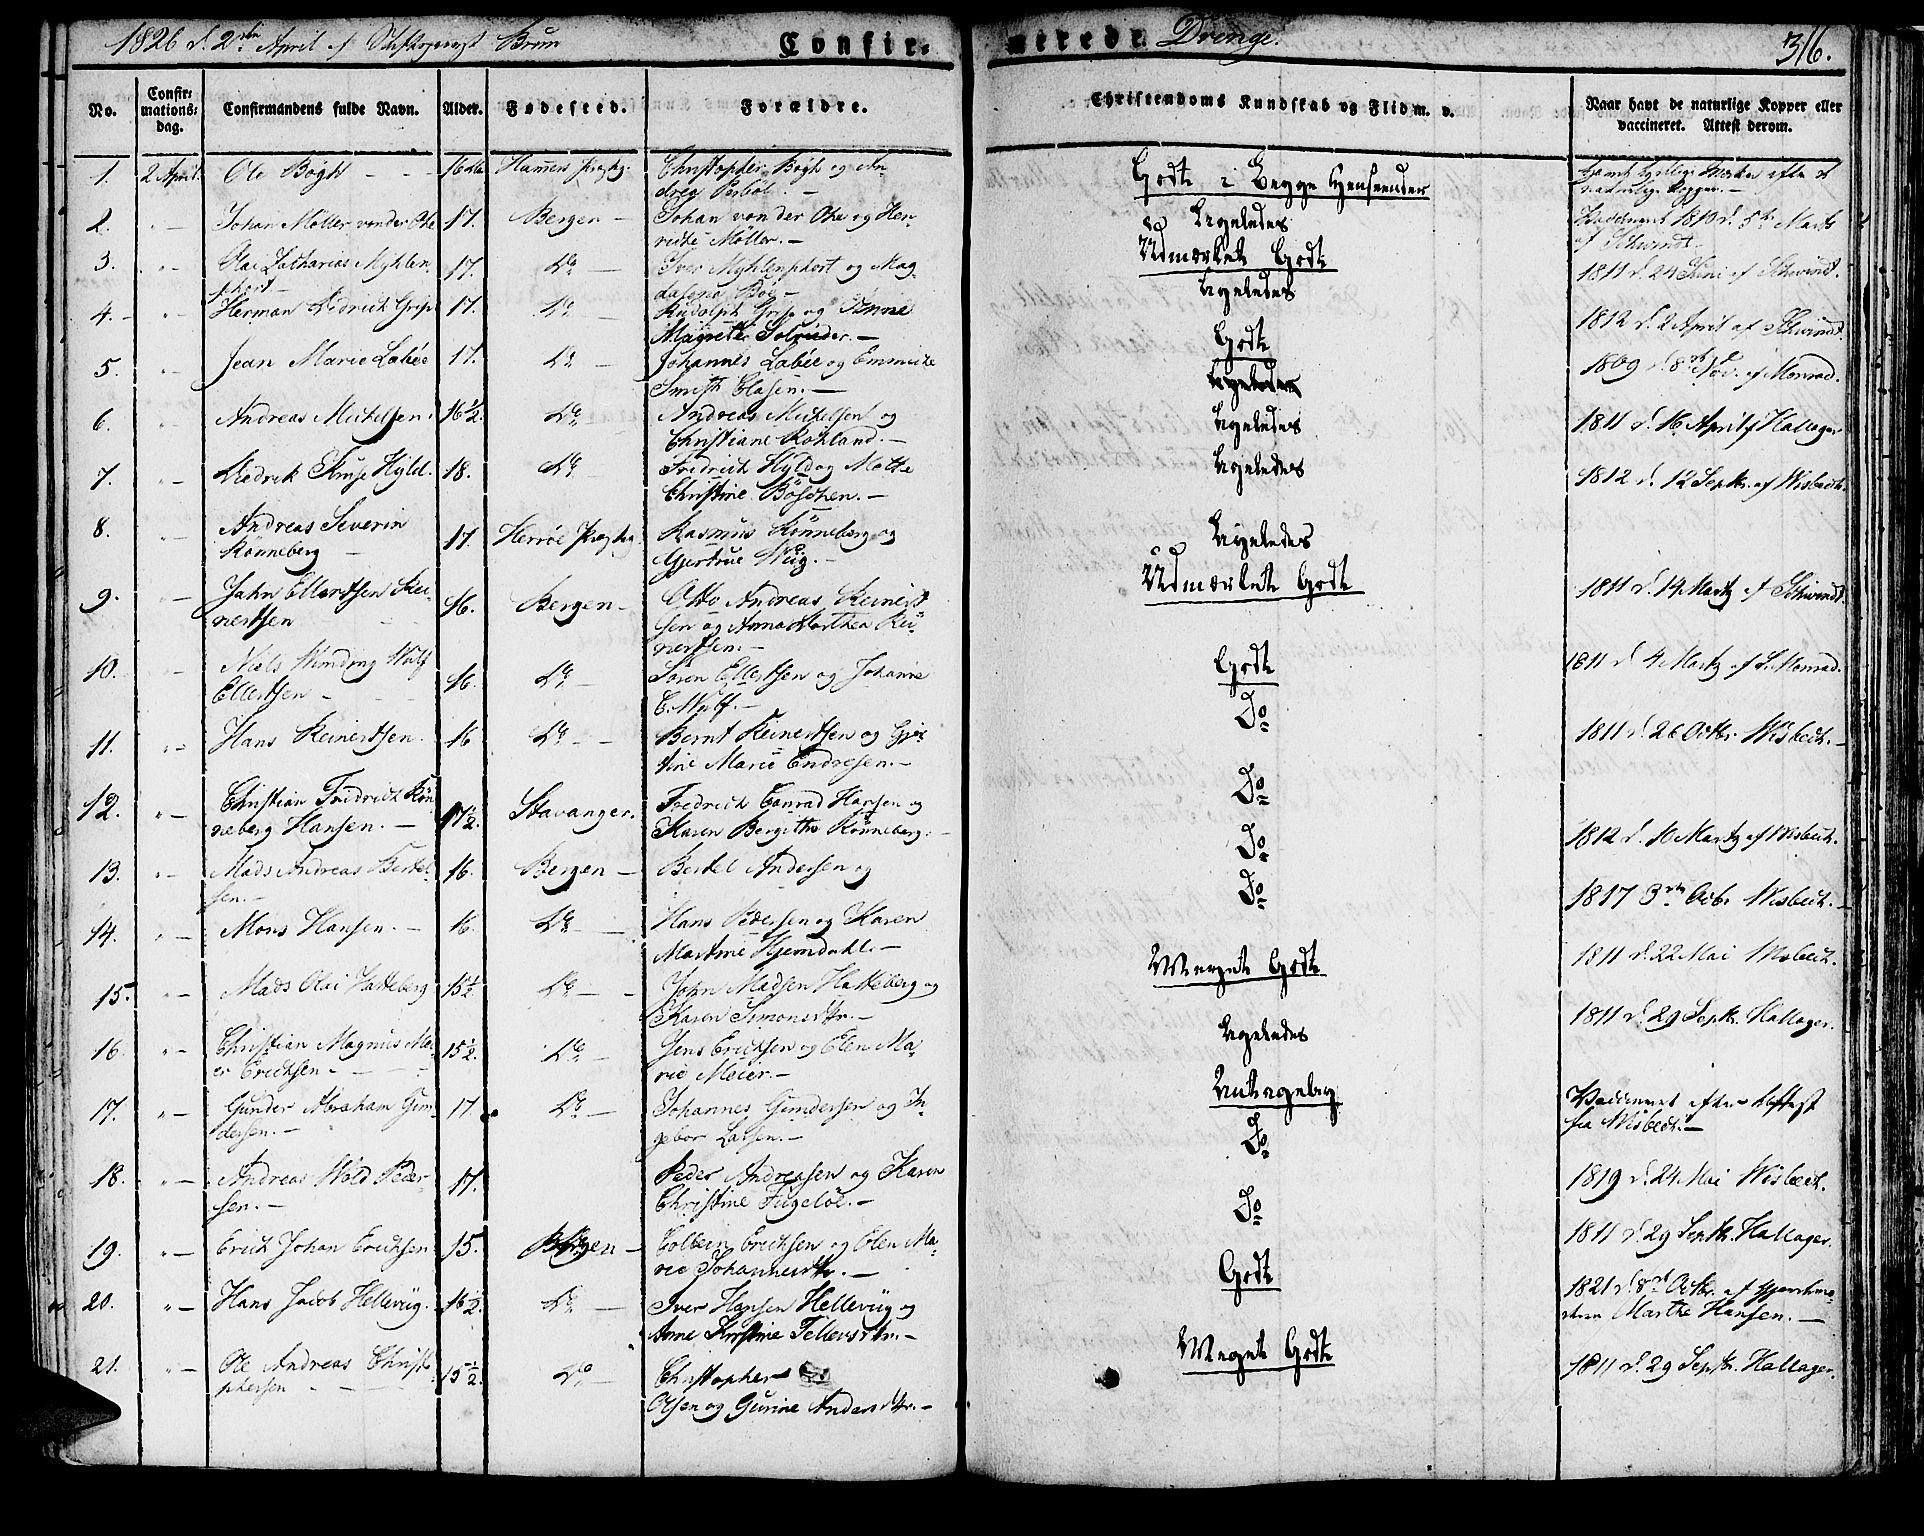 1826 d. 2den April af Stiftsprovst Brun
Confir-
merede Drenge.
316.
No.
Confir-
mations-
dag.
Confirmandens fulde Navn.
Alder.
Fødested.
Forældre.
Christendoms Kundskab og Flid m. v.
Naar havt de naturlige Kopper eller
vaccineret. Attest derom.
1. 2 April. Ole Bøgh - - - Hammers Præstg. Christopher Bøgh og An
Godt i begge Henseender
naturlige Kopper. -
2. " - Johan Møller von der Ohe 17. Bergen - Johan von der Ohe og Hen-
rikke Møller. -
Ligeledes
Vaccineret 1810 d. 5te Marts
af Schwindt.
3. " - Olai Zacharias Myhlen- 17. Do - Iver Myhlenphort og Mag-
phort - dalena Boe -
Udmærket Godt
1811 d. 24 Juni af Schwindt.
4. - " - Herman Didrich Grip 17. Do - Rudolph Grip og Anne
Magrethe Solrieder. -
Ligeledes
1812 d. 2 April af Schwindt.
5. " - Jean Marie Labée 17. Do - Johannes Labée og Emmicke
Smith Clasen. -
Godt
1809 d. 8de Nov. af Monrad.
Ligeledes
6. " - Andreas Michelsen. 16½. Do - Andreas Michelsen og
Christiane Rohland. -
Ligeledes
1811 d. 16 April af Hallager
7. " - Diedrik Hyld. 18. Do - Fredrich Hyld og Mette
Christine Böschen. -
Ligeledes
1812 d. 12 Septr. af Wisbech.
8. " - Andreas Severin
Rönneberg - 17. Herröe Præstg. Rasmus Rönneberg og
Gjertrue Wiig. -
Ligeledes
9. " - Jahn Ellertsen Rei-
nertsen 16. Bergen - Otto Andreas Reinert-
sen og Anna Dorthea Rei-
nertsen. -
Udmærket Godt
1811 d. 14 Martz af Schwindt.
10. " - Niels Wimding Wulf
Ellertsen - 16. Do - Søren Ellertsen og Johanne
C. Wulf. -
Godt
1811 d. 4 Martz af S. Monrad.
11. " - Hans Reinertsen. 16 Do - - Bernt Reinertsen og Gjer-
tine Marie Endresen. -
Do
1811 d. 26 Octbr. Wisbech. -
12. " - Christian Fridrich Rön-
neberg Hansen. - 17½. Stavanger. Fredrich Conrad Hansen og
Karen Bergithe Rönneberg. -
Do
1812 d. 10 Martz af Wisbech.
13. " - Mads Andreas Bertel-
sen. - 16. Bergen - Bertel Andersen og
Do
1817 3die Octbr Wisbech. -
14. " - Mons Hansen. - 16. Do - Hans Pedersen og Karen
Martine Hjemdahl. -
Do
1811 d. 22 Mai Wisbech.
15. " - Mads Olai Hatteberg 15½ Do - - John Madsen Hatteberg og
Karen Simonsdtr. -
Meget Godt
1811 d. 29 Septr. Hallager.
16. " - Christian Magnus Mei-
er Erichsen - 15½. Do - Jens Erichsen og Elen Ma-
rie Meier. -
Ligeledes
17. " - Gunder Abraham Gun-
dersen. - 17. Do - Johannes Gundersen og In-
gebor Larsen. -
Antagelig
Vaccineret efter Attest
fra Wisbech. -
18. " - Andreas Wold Peder-
sen. - 17. Peder Andreasen og Karen
Christine Fugeløe. -
Do
1819 d. 24 Mai Wisbech.
19. " - Erich Johan Erichsen. 15. Bergen - Colbein Erichsen og Elen Ma-
rie Johannesdtr. -
Do
1811 d. 29 Septr. Hallager.
20. " - Hans Jacob Hellevüg. 16½. Do - Iver Hansen Hellevüg og
Anne Kirstine Tellevsdtr. -
Godt
1821 d. 8de Octbr. af Gjordemo-
deren Marthe Hansen. -
21. " - Ole Andreas Christ-
phersen - - 15½. Do - Christopher
Olsen og Gurine Andersdtr. -
Meget Godt
1811 d. 29 Septr. Hallager.